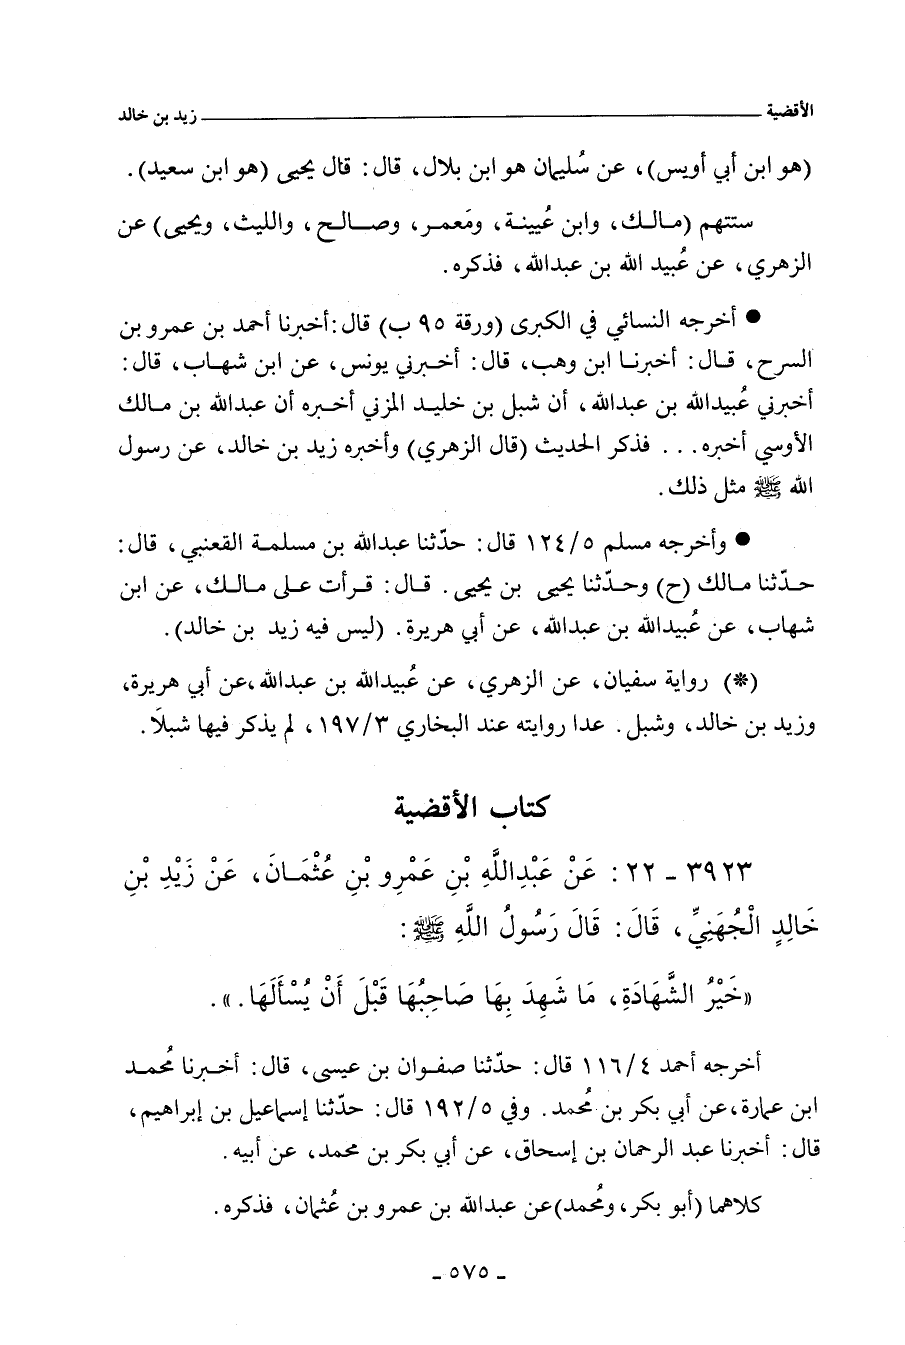 الأقضية ــــــــــــ زيد بن خالد
(هو ابن أبي أويس)، عن سُليمان هو ابن بلال، قال: قال يحيى (هو ابن سعيد).
ستتهم (مالك، وابن عُيينة، ومَعمر، وصالح، والليث، ويحيى) عن
الزهري، عن عُبيد الله بن عبدالله، فذكره.
● أخرجه النسائي في الكبرى (ورقة ٩٥ ب) قال:أخبرنا أحمد بن عمرو بن
السرح، قال: أخبرنا ابن وهب، قال: أخبرني يونس، عن ابن شهاب، قال:
أخبرني عُبيدالله بن عبدالله، أن شبل بن خليد المزني أخبره أن عبدالله بن مالك
الأوسي أخبره... فذكر الحديث (قال الزهري) وأخبره زيد بن خالد، عن رسول
الله ﷺ مثل ذلك.
● وأخرجه مسلم ١٢٤/٥ قال: حدّثنا عبدالله بن مسلمة القعنبي، قال:
حدّثنا مالك (ح) وحدّثنا يحيى بن يحيى. قال: قرأت على مالك، عن ابن
شهاب، عن عُبيدالله بن عبدالله، عن أبي هريرة. (ليس فيه زيد بن خالد).
(*) رواية سفيان، عن الزهري، عن عُبيدالله بن عبدالله،عن أبي هريرة،
وزيد بن خالد، وشبل. عدا روايته عند البخاري ١٩٧/٣، لم يذكر فيها شبلاً.
كتاب الأقضية
٣٩٢٣ - ٢٢: عَنْ عَبْدِاللَّهِ بْنِ عَمْرِو بْنِ عُثْمَانَ، عَنْ زَيْدِ بْنِ
خَالِدٍ الْجُهَنِيِّ، قَالَ: قَالَ رَسُولُ اللَّهِ ﷺ:
«خَيْرُ الشَّهَادَةِ، مَا شَهِدَ بِهَا صَاحِبُهَا قَبْلَ أَنْ يُسْأَلَهَا.».
أخرجه أحمد ١١٦/٤ قال: حدّثنا صفوان بن عيسى، قال: أخبرنا مُحمد
ابن عمارة،عن أبي بكر بن مُحمد. وفي ١٩٢/٥ قال: حدّثنا إسماعيل بن إبراهيم،
قال: أخبرنا عبد الرحمان بن إسحاق، عن أبي بكر بن محمد، عن أبيه.
كلاهما (أبو بكر، ومُحمد)عن عبدالله بن عمرو بن عُثمان، فذكره.
- ٥٧٥ -